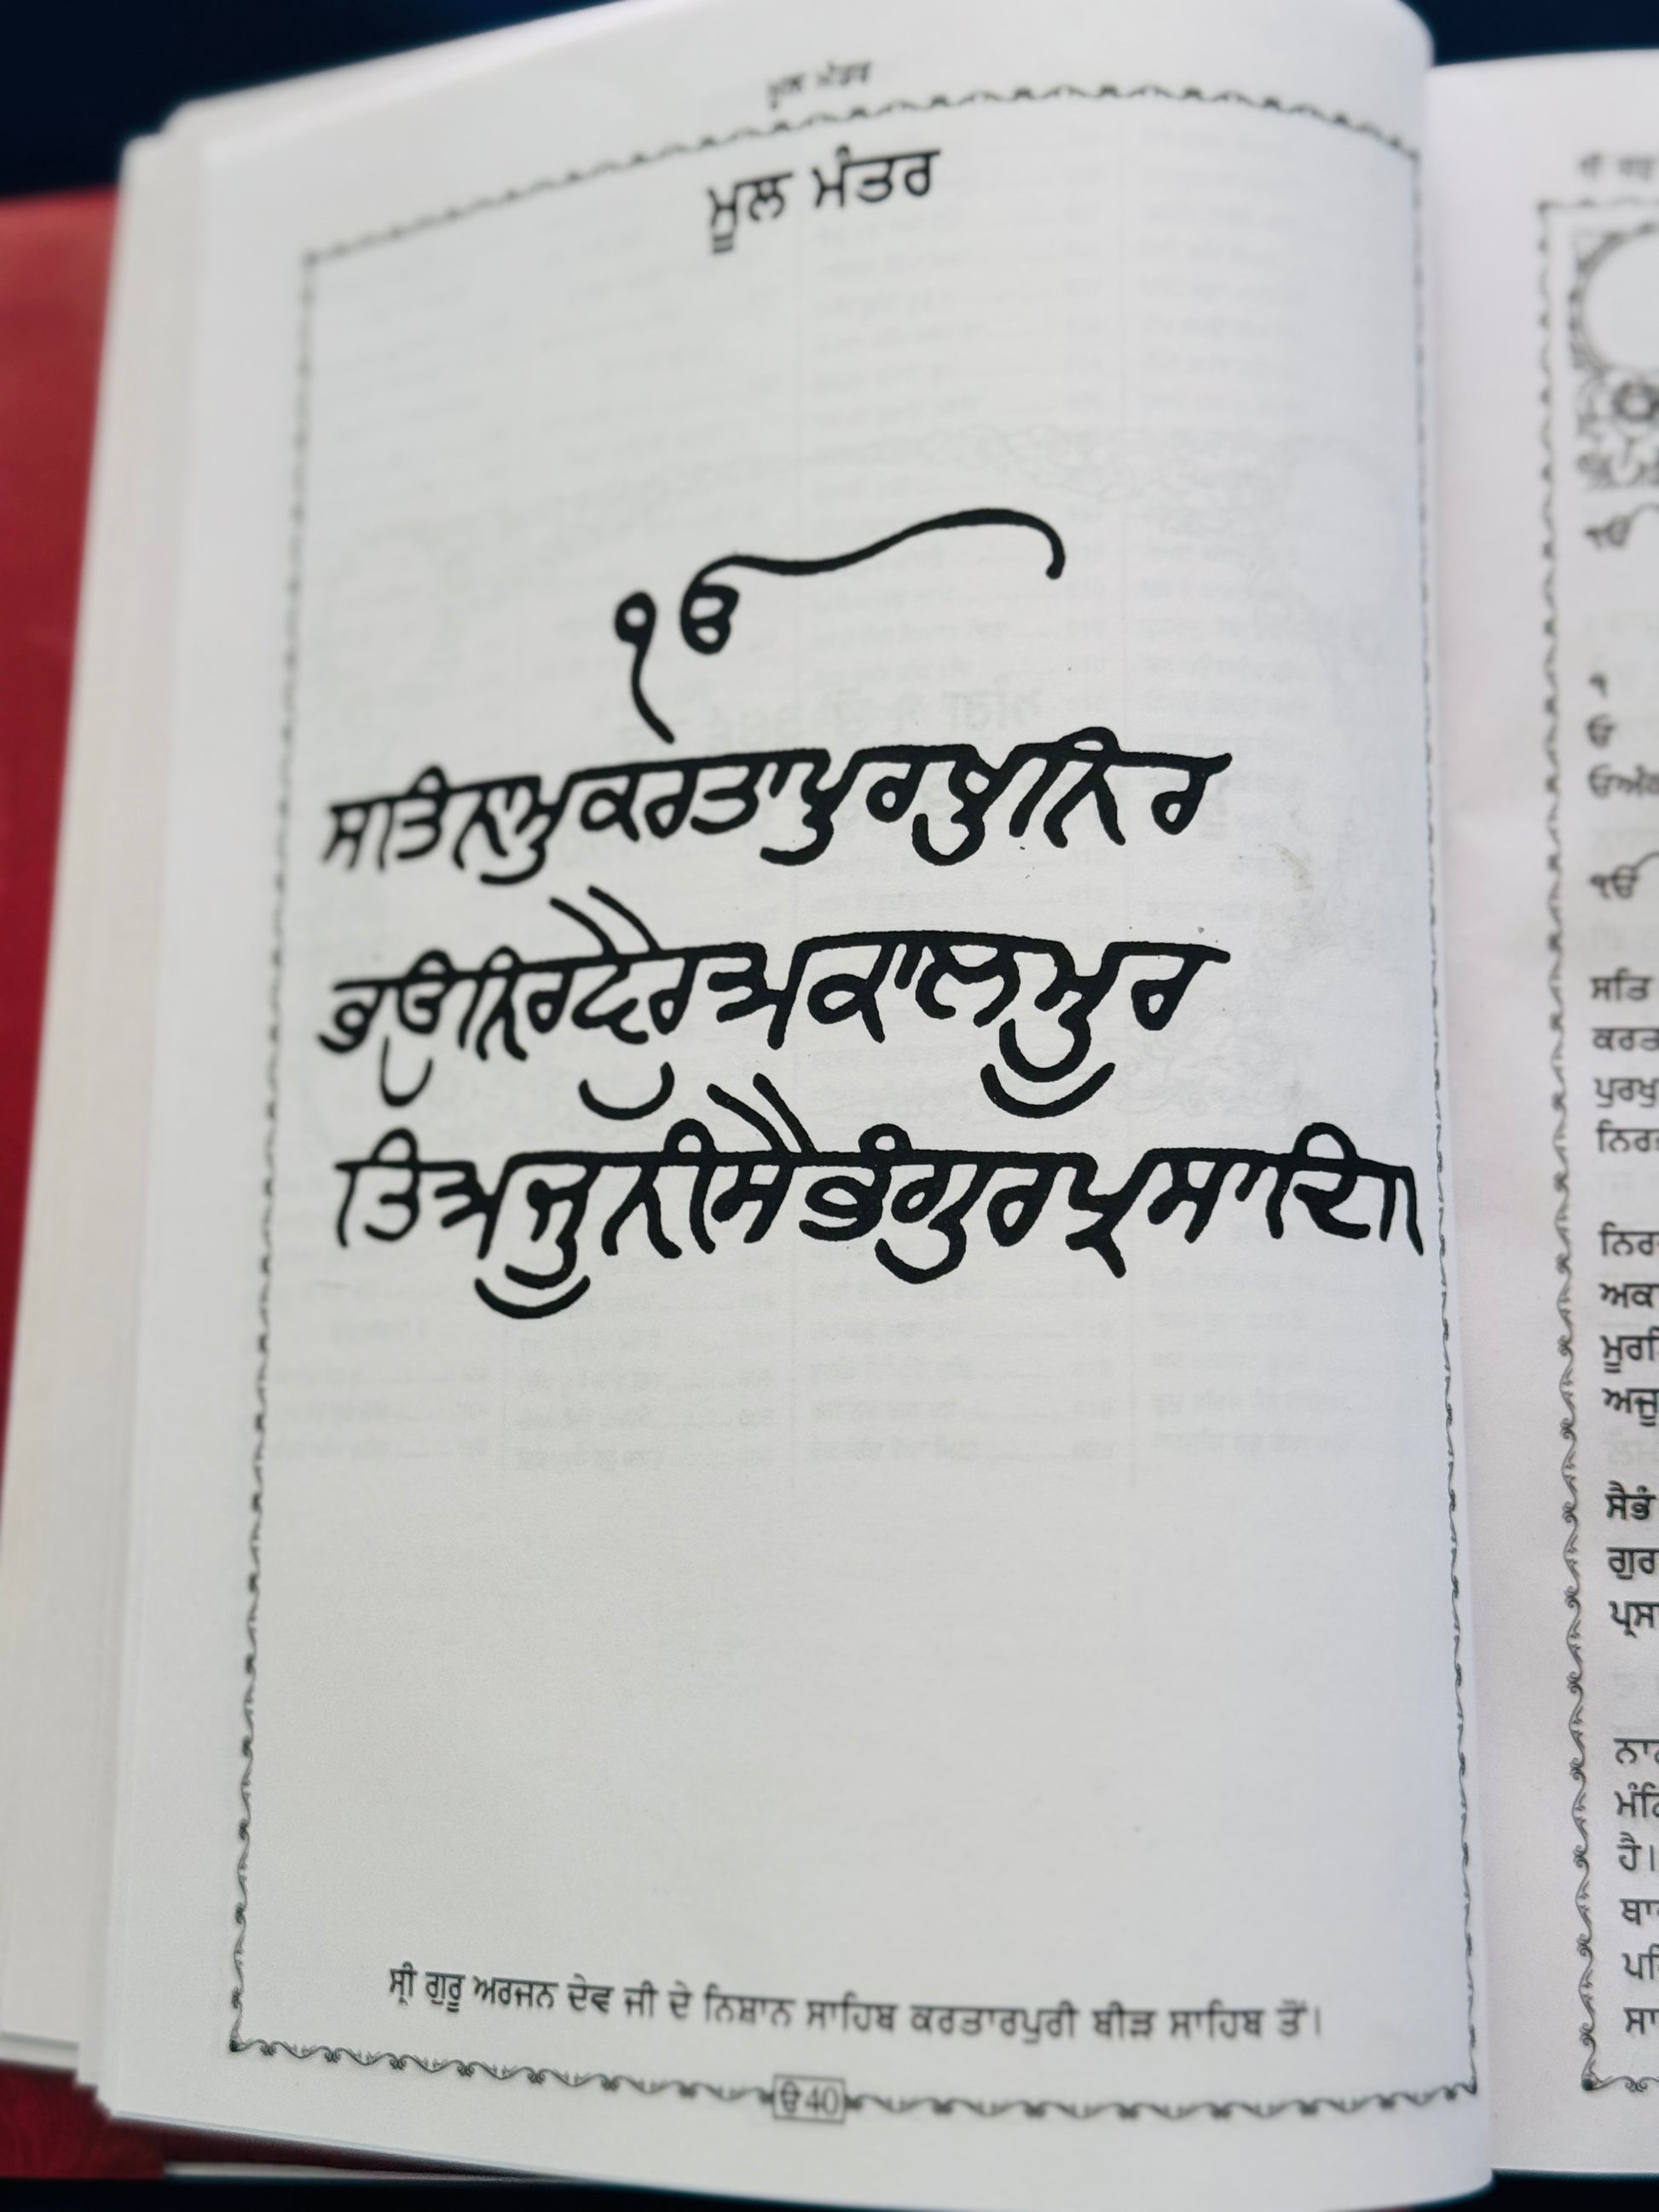 ਮੂਲ ਮੰਤਰ
ਮੂਲ ਮੰਤਰ
ੴ
ਸਤਿਨਾਮੁਕਰਤਾਪੁਰਖੁਨਿਰ
ਭਉਨਿਰਵੈਰੁਅਕਾਲਮੂਰ
ਤਿਅਜੂਨੀਸੈਭੰਗੁਰਪ੍ਰਸਾਦਿ॥
ਸ੍ਰੀ ਗੁਰੂ ਅਰਜਨ ਦੇਵ ਜੀ ਦੇ ਨਿਸ਼ਾਨ ਸਾਹਿਬ ਕਰਤਾਰਪੁਰੀ ਬੀੜ ਸਾਹਿਬ ਤੋਂ।
ੳ40
ੴ
੧
ਓ
ੴ
ਸਤਿ
ਪੁਰਖੁ
ਸੈਭੰ
ਹੈ।